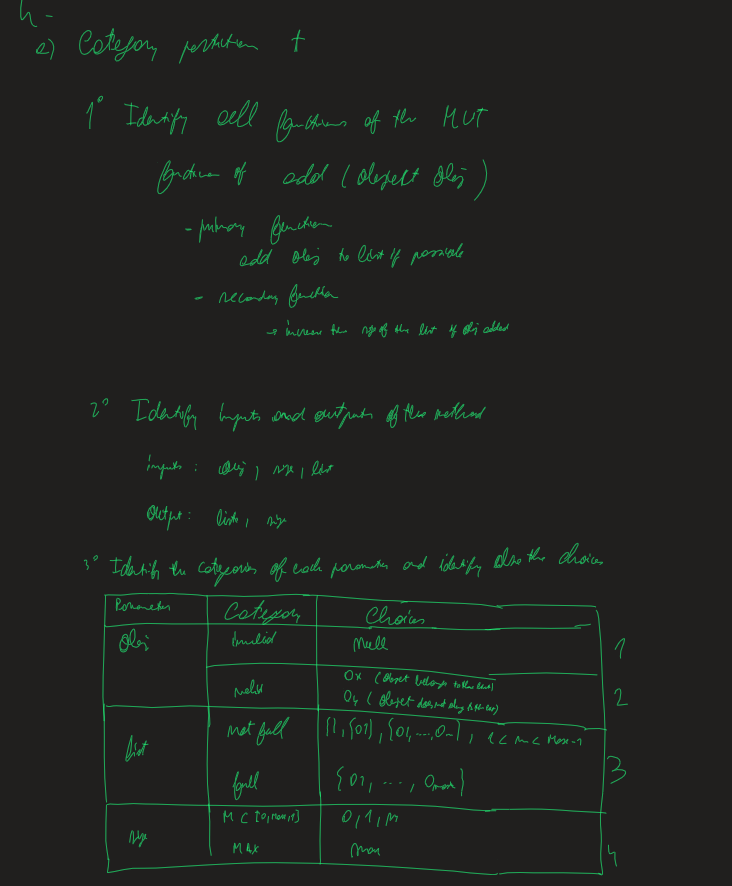 4-
a) Category partition t
1° Identify all functions of the MUT
function of add (Object Obj)
- primary function
add Obj to list if possible
- secondary function
→ increase the size of the list if obj added
2° Identify inputs and outputs of the method
inputs : Obj, size, list
Output : list, size
3° Identify the categories of each parameter and identify also the choices
Parameter Category Choices
Obj Invalid Null 1
valid Ox (Object belongs to the list)
Oy (Object does not belong to the list) 2
list not full {}, {O1}, {O1, ..., On}, 1 < n < Max-1
full {O1, ..., Omax} 3
size [0, max-1] 0, 1, n
MAX max 4